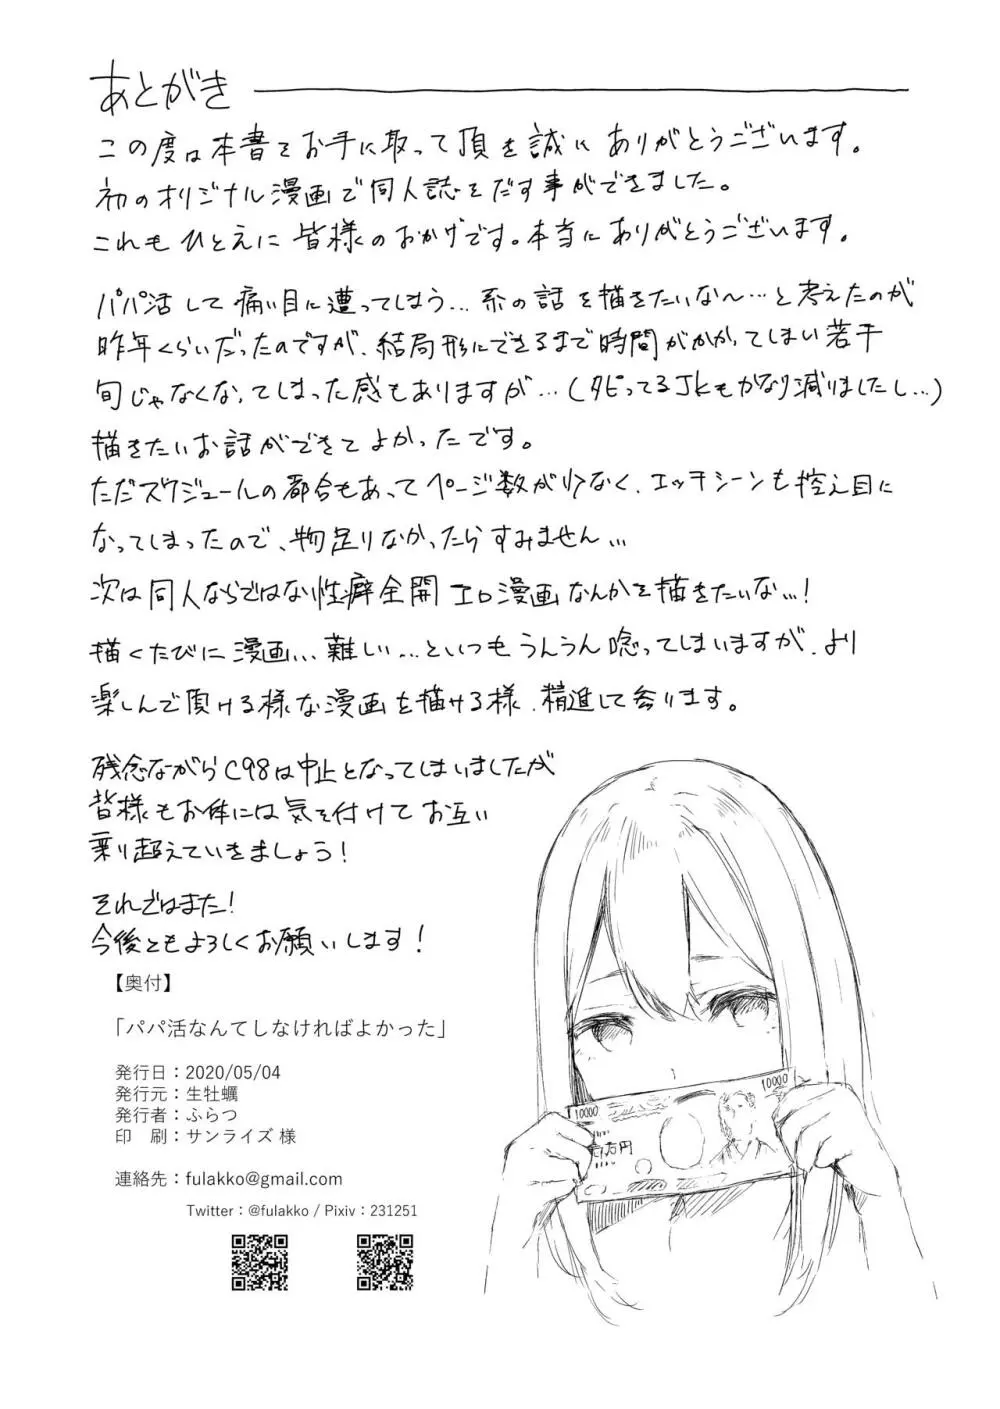 あとがき
この度は本書をお手に取って頂き誠にありがとうございます。
初のオリジナル漫画で同人誌をだす事ができました。
これもひとえに皆様のおかげです。本当にありがとうございます。
パパ活して痛い目に遭ってしまう…系の話を描きたいな〜…と考えたのが
昨年くらいだったのですが、結局形にできるまで時間がかかってしまい若干
旬じゃなくなってしまった感もありますが…(タピってるJKもかなり減りましたし…)
描きたいお話ができてよかったです。
ただスケジュールの都合もあってページ数が少なく、エッチシーンも控え目に
なってしまったので、物足りなかったらすみません…
次は同人ならではな性癖全開エロ漫画なんかを描きたいな…!
描くたびに漫画…難しい…といつもうんうん唸ってしまいますが、より
楽しんで頂ける様な漫画を描ける様、精進して参ります。
残念ながらC98は中止となってしまいましたが
皆様もお体には気を付けてお互い
乗り超えていきましょう!
それではまた!
今後ともよろしくお願いします!
【奥付】
「パパ活なんてしなければよかった」
発行日:2020/05/04
発行元:生牡蠣
発行者:ふらつ
印 刷:サンライズ 様
連絡先:fulakko@gmail.com
Twitter:@fulakko / Pixiv:231251
10000
10000
壱万円